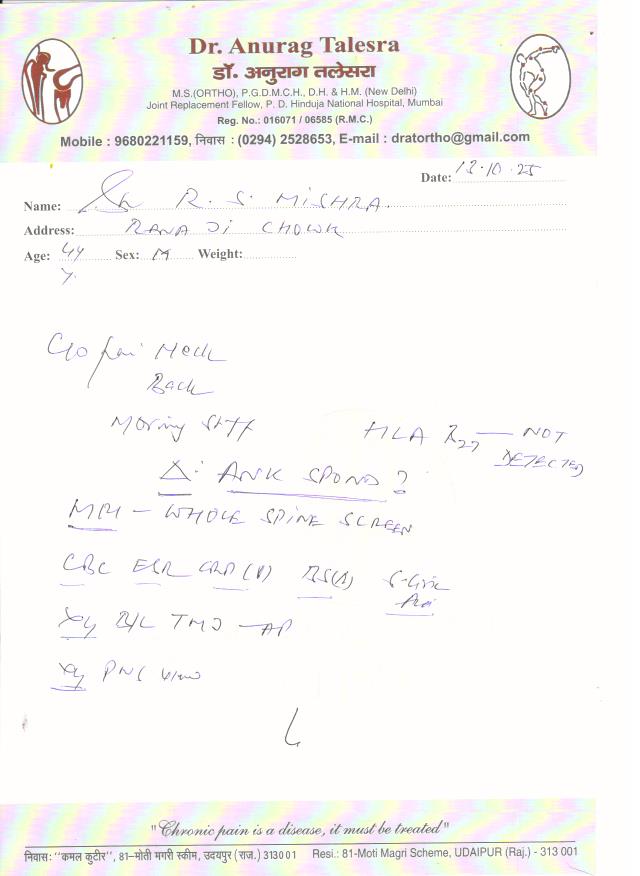 Dr. Anurag Talesra
डॉ. अनुराग तलेसरा
M.S.(ORTHO), P.G.D.M.C.H., D.H. & H.M. (New Delhi)
Joint Replacement Fellow, P. D. Hinduja National Hospital, Mumbai
Reg. No.: 016071 / 06585 (R.M.C.)
Mobile : 9680221159, निवास : (0294) 2528653, E-mail : dratortho@gmail.com
Date: 13.10.25
Name: Sh R. S. MISHRA
Address: RANA JI CHOWK
Age: 44 y. Sex: M Weight:
C/o Pain Neck
Back
Morning Stiff
HLA B27 — NOT
DETECTED
Δ: ANK SPOND ?
MRI – WHOLE SPINE SCREEN
CBC ESR CRP (V) BS(R) S-Uric
Acid
Xry B/L TMJ – AP
Xry PNS view
"Chronic pain is a disease, it must be treated"
निवास: "कमल कुटीर", 81–मोती मगरी स्कीम, उदयपुर (राज.) 313001 Resi.: 81-Moti Magri Scheme, UDAIPUR (Raj.) - 313 001